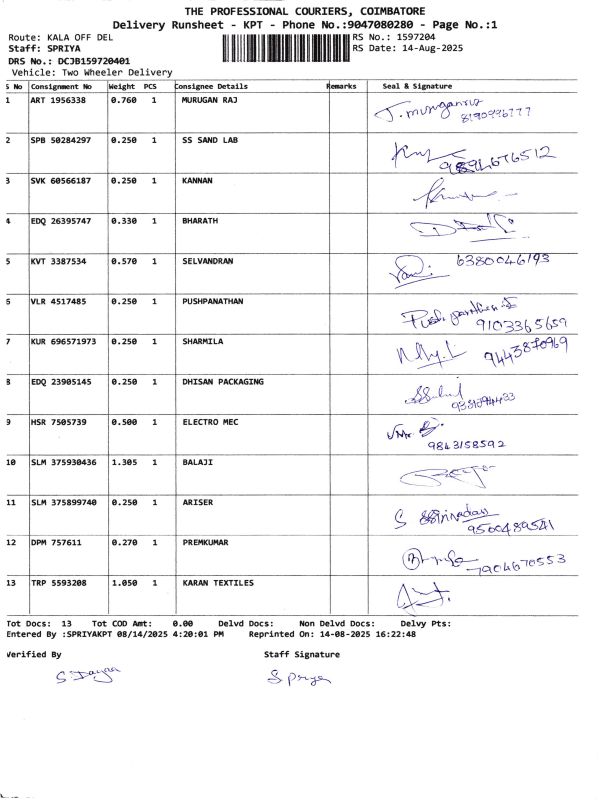 THE PROFESSIONAL COURIERS, COIMBATORE
Delivery Runsheet - KPT - Phone No.:9047080280 - Page No.:1
Route: KALA OFF DEL RS No.: 1597204
Staff: SPRIYA RS Date: 14-Aug-2025
DRS No.: DCJB159720401
Vehicle: Two Wheeler Delivery
S No Consignment No Weight PCS Consignee Details Remarks Seal & Signature
1 ART 1956338 0.760 1 MURUGAN RAJ J. murugan
2 SPB 50284297 0.250 1 SS SAND LAB 9894676512
3 SVK 60566187 0.250 1 KANNAN
4 EDQ 26395747 0.330 1 BHARATH
5 KVT 3387534 0.570 1 SELVANDRAN 6380046193
6 VLR 4517485 0.250 1 PUSHPANATHAN
9103365659
7 KUR 696571973 0.250 1 SHARMILA 9443870969
8 EDQ 23905145 0.250 1 DHISAN PACKAGING
9 HSR 7505739 0.500 1 ELECTRO MEC
9843158592
10 SLM 375930436 1.305 1 BALAJI
11 SLM 375899740 0.250 1 ARISER S
9500489541
12 DPM 757611 0.270 1 PREMKUMAR 7904670553
13 TRP 5593208 1.050 1 KARAN TEXTILES
Tot Docs: 13 Tot COD Amt: 0.00 Delvd Docs: Non Delvd Docs: Delvy Pts:
Entered By :SPRIYAKPT 08/14/2025 4:20:01 PM Reprinted On: 14-08-2025 16:22:48
Verified By Staff Signature
S. S Priya